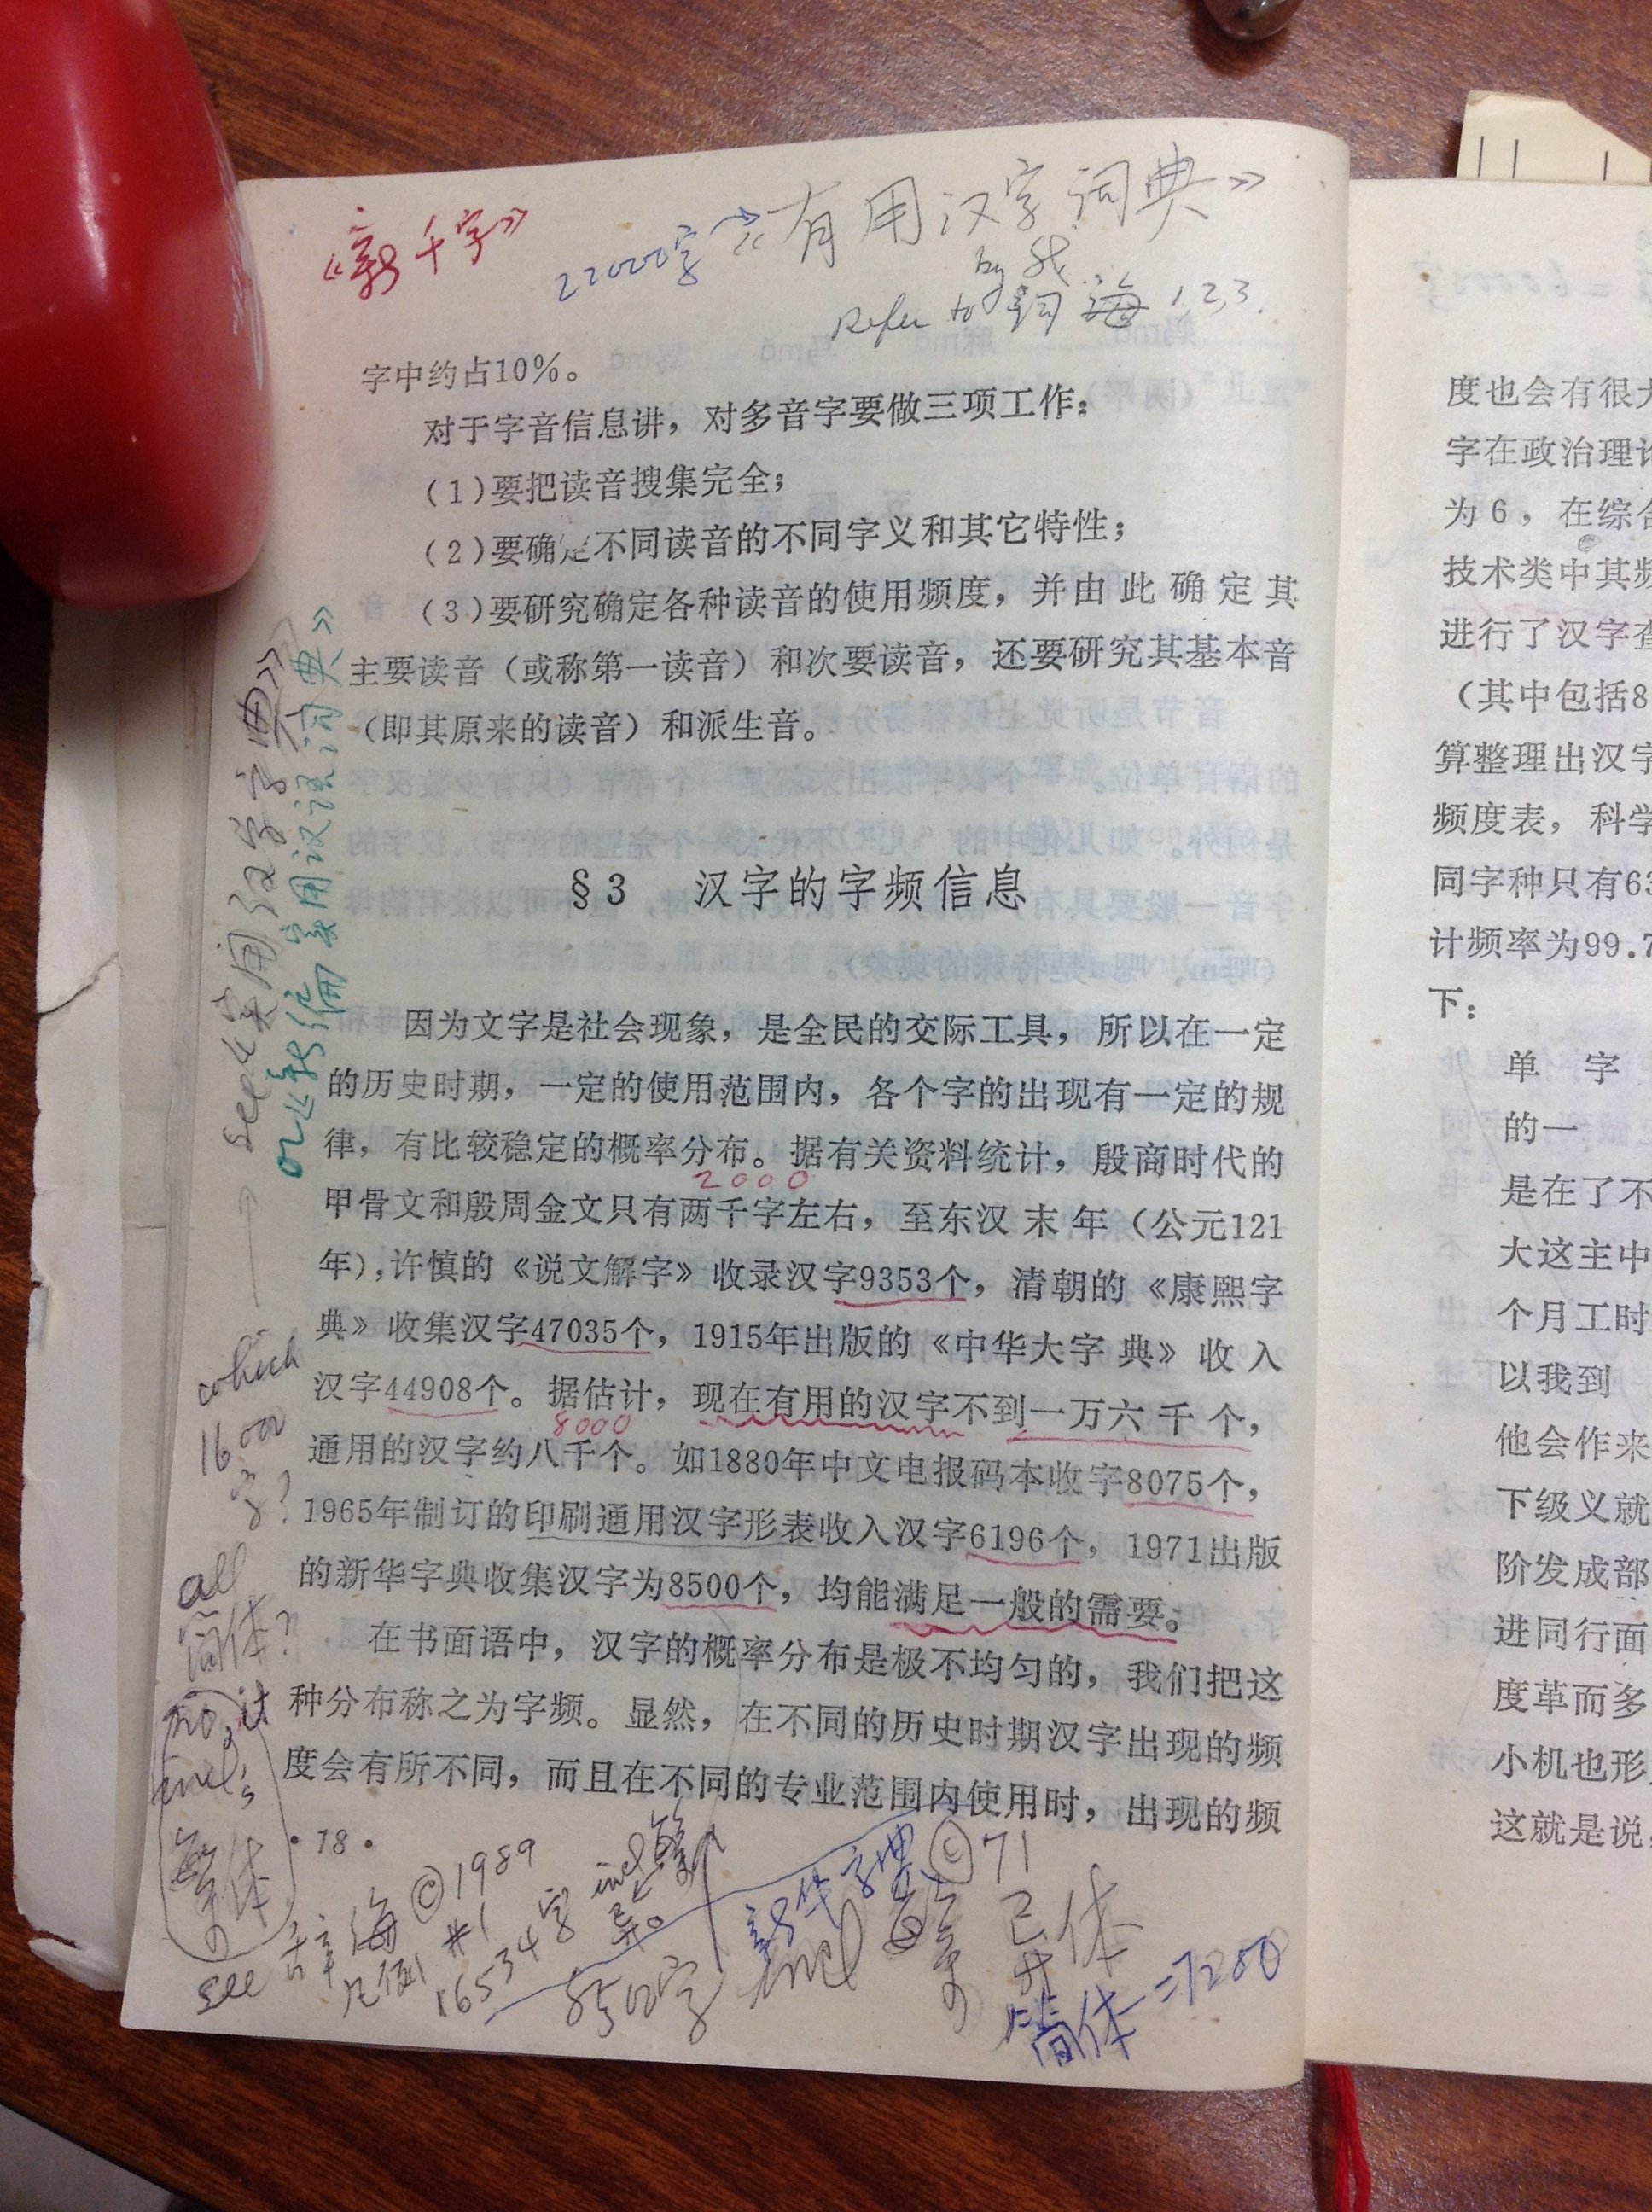 《新千字》
22000字
《有用汉字词典》
by 我
Refer to 词海 1,2,3.
字中约占10%。
对于字音信息讲，对多音字要做三项工作：
(1)要把读音搜集完全；
(2)要确定不同读音的不同字义和其它特性；
(3)要研究确定各种读音的使用频度，并由此确定其
主要读音（或称第一读音）和次要读音，还要研究其基本音
（即其原来的读音）和派生音。
§3 汉字的字频信息
因为文字是社会现象，是全民的交际工具，所以在一定
的历史时期，一定的使用范围内，各个字的出现有一定的规
律，有比较稳定的概率分布。据有关资料统计，殷商时代的
2000
甲骨文和殷周金文只有两千字左右，至东汉末年（公元121
年），许慎的《说文解字》收录汉字9353个，清朝的《康熙字
典》收集汉字47035个，1915年出版的《中华大字典》收入
汉字44908个。据估计，现在有用的汉字不到一万六千个，
8000
通用的汉字约八千个。如1880年中文电报码本收字8075个，
1965年制订的印刷通用汉字形表收入汉字6196个，1971出版
的新华字典收集汉字为8500个，均能满足一般的需要。
在书面语中，汉字的概率分布是极不均匀的，我们把这
种分布称之为字频。显然，在不同的历史时期汉字出现的频
度会有所不同，而且在不同的专业范围内使用时，出现的频
·18·
see 实用汉字字典》
or《新编实用汉语词典》
which
16000
字?
all
简体?
no, it
incl's
繁体
see 辞海 ©1989
凡例 #1
16534字
incl 繁
异。
新华字典 ©71
850字
incl 繁
异体
简体=7200
度也会有很大
字在政治理论
为6，在综合
技术类中其频
进行了汉字查
（其中包括8
算整理出汉字
频度表，科学
同字种只有63
计频率为99.7
下：
单字
的一
是在了不
大这主中
个月工时
以我到
他会作来
下级义就
阶发成部
进同行面
度革而多
小机也形
这就是说，